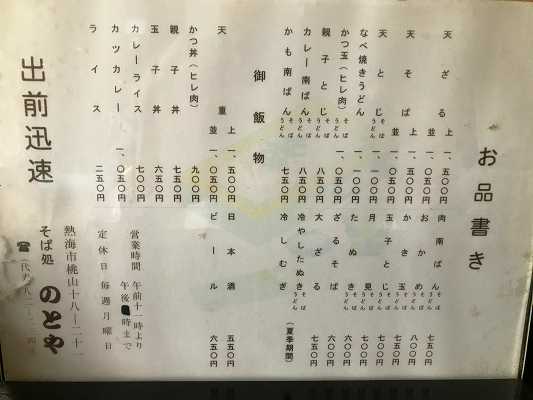 お品書き
天ざる 上 一、五〇〇円
並 一、〇五〇円
天そば 上 一、五〇〇円
並 一、〇五〇円
天とじ そば うどん 一、〇五〇円
なべ焼きうどん 一、〇五〇円
かつ玉(ヒレ肉) そば うどん 一、〇五〇円
親子とじ そば うどん 八五〇円
カレー南ばん そば うどん 八五〇円
かも南ばん そば うどん 七五〇円
肉南ばん そば うどん 七五〇円
おかめ そば うどん 八〇〇円
かき玉 そば うどん 七五〇円
玉子とじ そば うどん 七〇〇円
月見 そば うどん
たぬき そば うどん
ざるそば
大ざる
冷やしたぬき そば うどん 七五〇円
冷しむぎ (夏季期間)
御飯物
天重 上 一、五〇〇円
並 一、〇五〇円
かつ丼(ヒレ肉) 九〇〇円
親子丼 七五〇円
玉子丼 六五〇円
カレーライス 七〇〇円
カツカレー 一、〇五〇円
ライス 二五〇円
日本酒 五五〇円
ビール 六五〇円
営業時間 午前十一時より
午後 時まで
定休日 毎週月曜日
出前迅速
熱海市桃山十八ー二十一
そば処 のとや